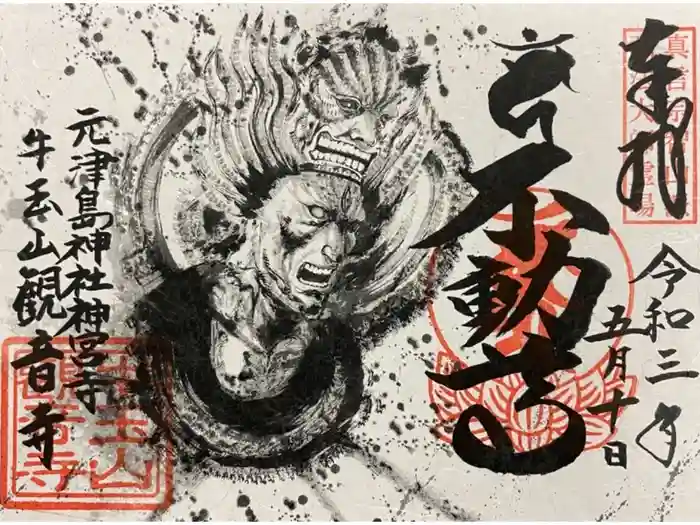 奉拝
令和三年
五月十日
不動
元津島神社神宮寺
牛玉山観音寺
牛玉山
観音寺